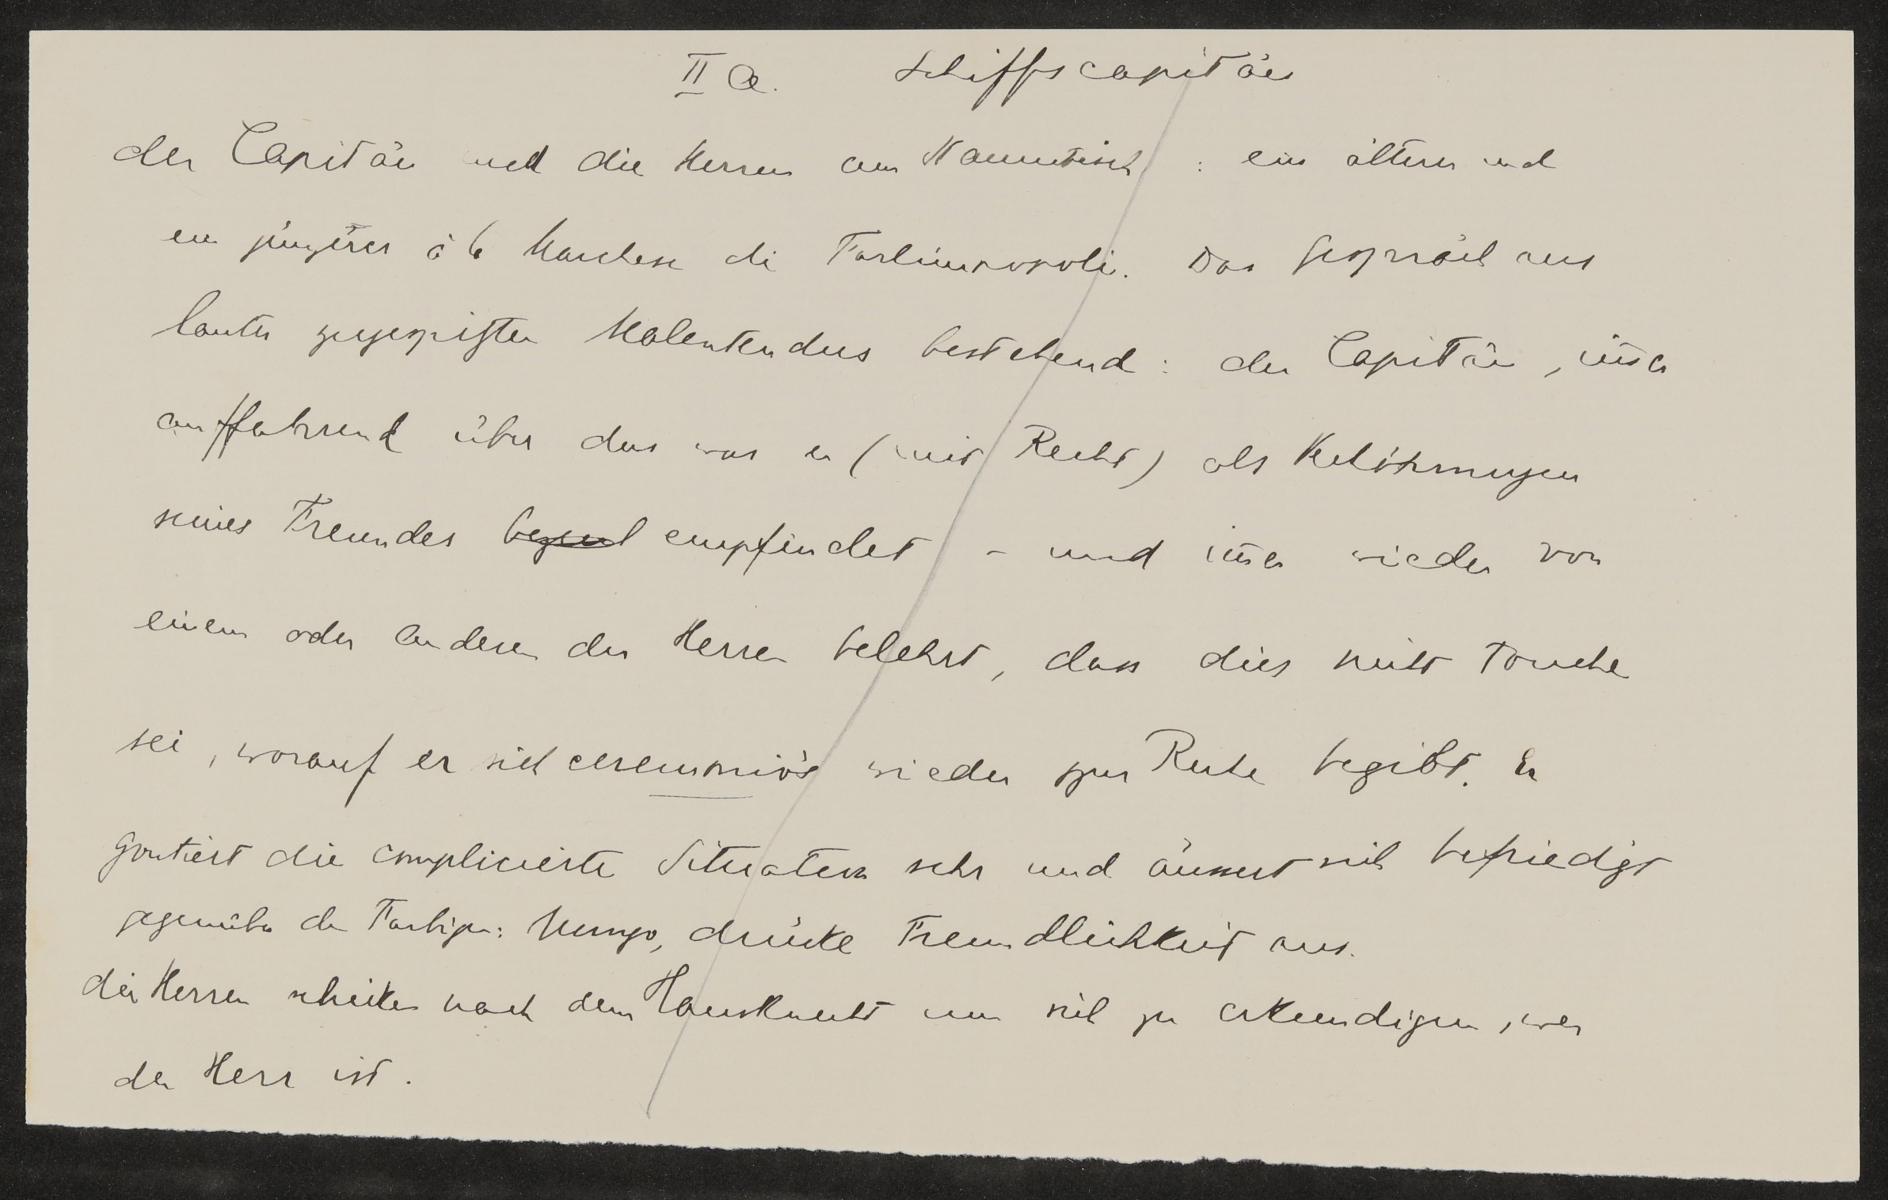 II a. Schiffscapitän
der Capitän und die Herren am Stammtisch : ein älterer und
ein jüngerer à la Marchese di Forlimpopoli. Das Gespräch aus
lauter zugespitzten Malentendus bestehend : der Capitän, im̄er
auffahrend über das was er (mit Recht) als Verhöhnungen
seines Freundes empfindet – und im̄er wieder von
einem oder anderen der Herren belehrt, dass dies nicht touche
sei, worauf er sich ceremoniös wieder zur Ruhe begibt. Er
goutiert die complicierte Situation sehr und äussert sich befriedigt
gegenüber der Farbigen: Mungo, drücke Freundlichkeit aus.
die Herren schicken nach dem Hausknecht um sich zu erkundigen, wer
der Herr ist.